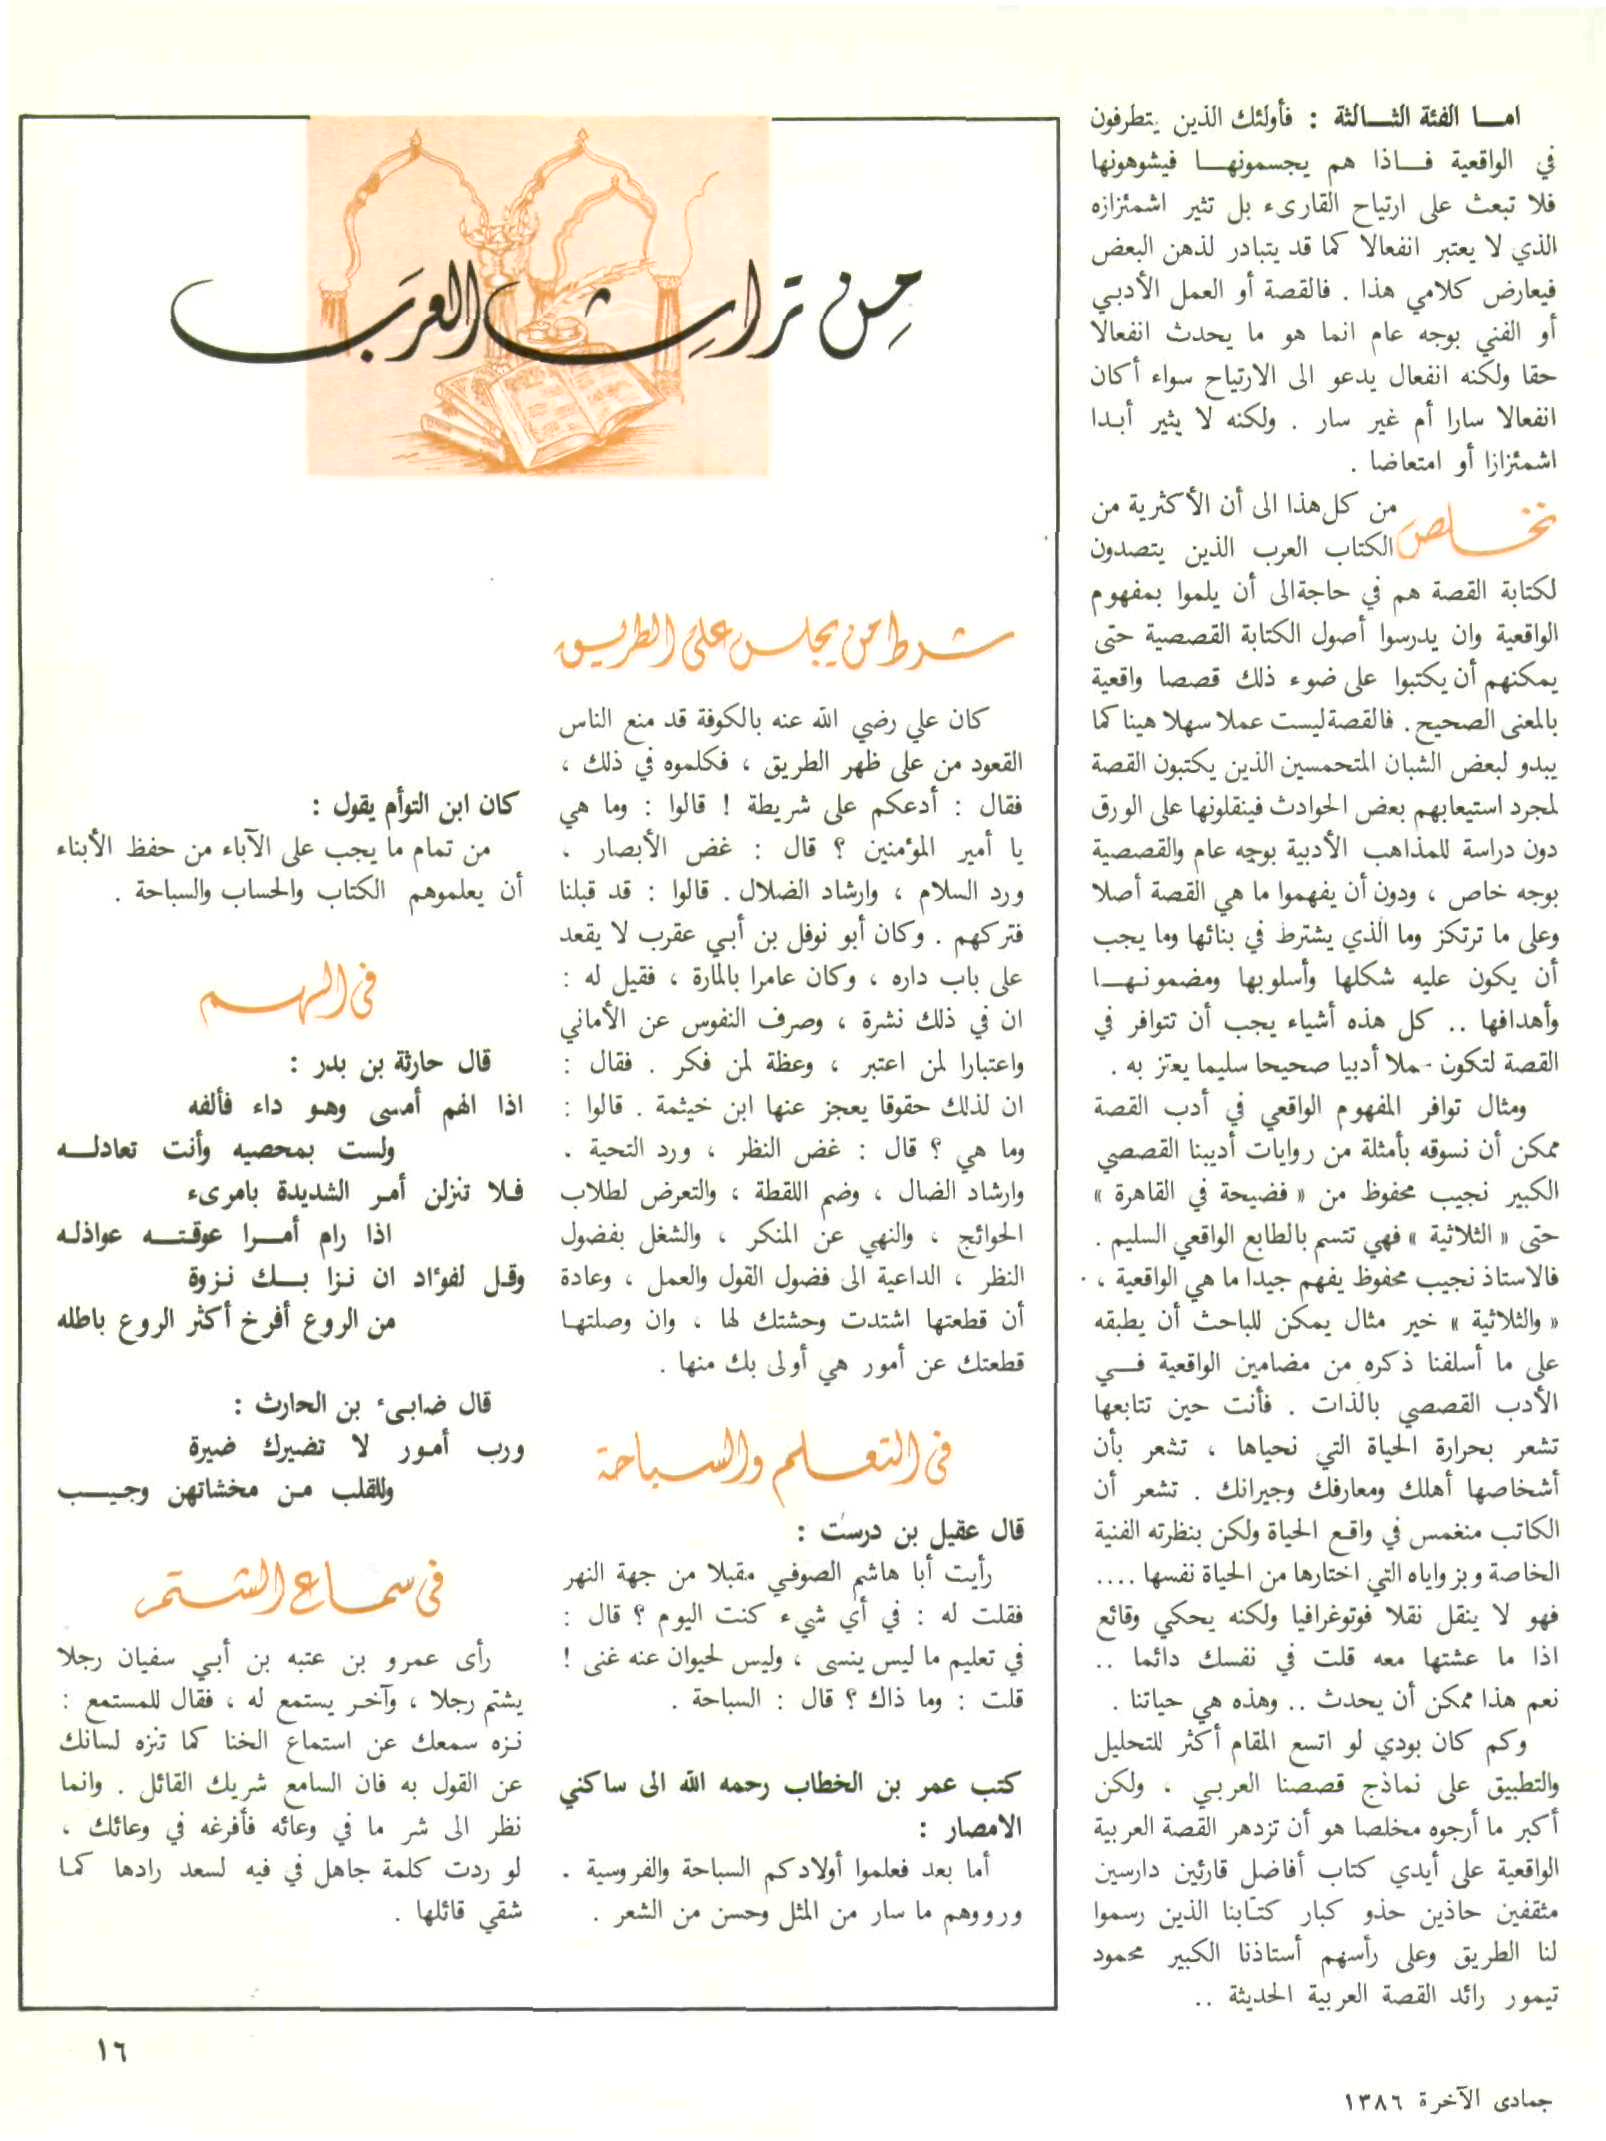 امـــا الفئة الثـــالثة : فأولئك الذين يتطرفون
في الواقعية فـــاذا هم يجسمونهـــا فيشوهونها
فلا تبعث على ارتياح القارىء بل تثير اشمئزازه
الذي لا يعتبر انفعالا كما قد يتبادر لذهن البعض
فيعارض كلامي هذا . فالقصة أو العمل الأدبي
أو الفني بوجه عام انما هو ما يحدث انفعالا
حقا ولكنه انفعال يدعو الى الارتياح سواء أكان
انفعالا سارا أم غير سار . ولكنه لا يثير أبـدا
اشمئزازا أو امتعاضا .
نخلص من كل هذا الى أن الأكثرية من
الكتاب العرب الذين يتصدون
لكتابة القصة هم في حاجة الى أن يلموا بمفهوم
الواقعية وان يدرسوا أصول الكتابة القصصية حتى
يمكنهم أن يكتبوا على ضوء ذلك قصصا واقعية
بالمعنى الصحيح . فالقصة ليست عملا سهلا هينا كما
يبدو لبعض الشبان المتحمسين الذين يكتبون القصة
لمجرد استيعابهم بعض الحوادث فينقلونها على الورق
دون دراسة للمذاهب الأدبية بوجه عام والقصصية
بوجه خاص ، ودون أن يفهموا ما هي القصة أصلا
وعلى ما ترتكز وما الذي يشترط في بنائها وما يجب
أن يكون عليه شكلها وأسلوبها ومضمونهـــا
وأهدافها .. كل هذه أشياء يجب أن تتوافر في
القصة لتكون عملا أدبيا صحيحا سليما يعتز به .
ومثال توافر المفهوم الواقعي في أدب القصة
ممكن أن نسوقه بأمثلة من روايات أديبنا القصصي
الكبير نجيب محفوظ من « فضيحة في القاهرة »
حتى « الثلاثية » فهي تتسم بالطابع الواقعي السليم .
فالاستاذ نجيب محفوظ يفهم جيدا ما هي الواقعية ،
« والثلاثية » خير مثال يمكن للباحث أن يطبقه
على ما أسلفنا ذكره من مضامين الواقعية فـــي
الأدب القصصي بالذات . فأنت حين تتابعها
تشعر بحرارة الحياة التي نحياها ، تشعر بأن
أشخاصها أهلك ومعارفك وجيرانك . تشعر أن
الكاتب منغمس في واقـع الحياة ولكن بنظرته الفنية
الخاصة وبزواياه التي اختارها من الحياة نفسها ....
فهو لا ينقل نقلا فوتوغرافيا ولكنه يحكي وقائع
اذا ما عشتها معه قلت في نفسك دائما ..
نعم هذا ممكن أن يحدث .. وهذه هي حياتنا .
وكم كان بودي لو اتسع المقام أكثر للتحليل
والتطبيق على نماذج قصصنا العربـي ، ولكن
أكبر ما أرجوه مخلصا هو أن تزدهر القصة العربية
الواقعية على أيدي كتاب أفاضل قارئين دارسين
مثقفين حاذين حذو كبار كتّـابنا الذين رسموا
لنا الطريق وعلى رأسهم أستاذنا الكبير محمود
تيمور رائد القصة العربية الحديثة ..
من تراث العرب
شرط من يجلس على الطريق
كان علي رضي الله عنه بالكوفة قد منع الناس
القعود من على ظهر الطريق ، فكلموه في ذلك ،
فقال : أدعكم على شريطة ! قالوا : وما هي
يا أمير المؤمنين ؟ قال : غض الأبصار ،
ورد السلام ، وارشاد الضلال . قالوا : قد قبلنا
فتركهم . وكان أبو نوفل بن أبي عقرب لا يقعد
على باب داره ، وكان عامرا بالمارة ، فقيل له :
ان في ذلك نشرة ، وصرف النفوس عن الأماني
واعتبارا لمن اعتبر ، وعظة لمن فكر . فقال :
ان لذلك حقوقا يعجز عنها ابن خيثمة . قالوا :
وما هي ؟ قال : غض النظر ، ورد التحية .
وارشاد الضال ، وضم اللقطة ، والتعرض لطلاب
الحوائج ، والنهي عن المنكر ، والشغل بفضول
النظر ، الداعية الى فضول القول والعمل ، وعادة
أن قطعتها اشتدت وحشتك لها ، وان وصلتهـا
قطعتك عن أمور هي أولى بك منها .
في التعلم والسباحة
قال عقيل بن درست :
رأيت أبا هاشم الصوفي مقبلا من جهة النهر
فقلت له : في أي شيء كنت اليوم ؟ قال :
في تعليم ما ليس ينسى ، وليس لحيوان عنه غنى !
قلت : وما ذاك ؟ قال : السباحة .
كتب عمر بن الخطاب رحمه الله الى ساكني
الامصار :
أما بعد فعلموا أولادكم السباحة والفروسية .
ورووهم ما سار من المثل وحسن من الشعر .
كان ابن التوأم يقول :
من تمام ما يجب على الآباء من حفظ الأبناء
أن يعلموهم الكتاب والحساب والسباحة .
في الهم
قال حارثة بن بدر :
اذا الهم أمسى وهـو داء فألفه
ولست بمحصيه وأنت تعادلـــه
فـلا تنزلن أمـر الشديدة بامرىء
اذا رام أمـــرا عوقتـــه عواذلـه
وقـل لفؤاد ان نـزا بـــك نـزوة
من الروع أفرخ أكثر الروع باطله
قال ضابىء بن الحارث :
ورب أمـور لا تضيرك ضيرة
وللقلب مـن مخشاتهن وجـيـــب
في سماع الشتم
رأى عمرو بن عتبه بن أبي سفيان رجلا
يشتم رجلا ، وآخـر يستمع له ، فقال للمستمع :
نـزه سمعك عن استماع الخنا كما تنزه لسانك
عن القول به فان السامع شريك القائل . وانما
نظر الى شر ما في وعائه فأفرغه في وعائك ،
لو ردت كلمة جاهل في فيه لسعد رادها كمـا
شقي قائلها .
١٦
جمادى الآخرة ١٣٨٦